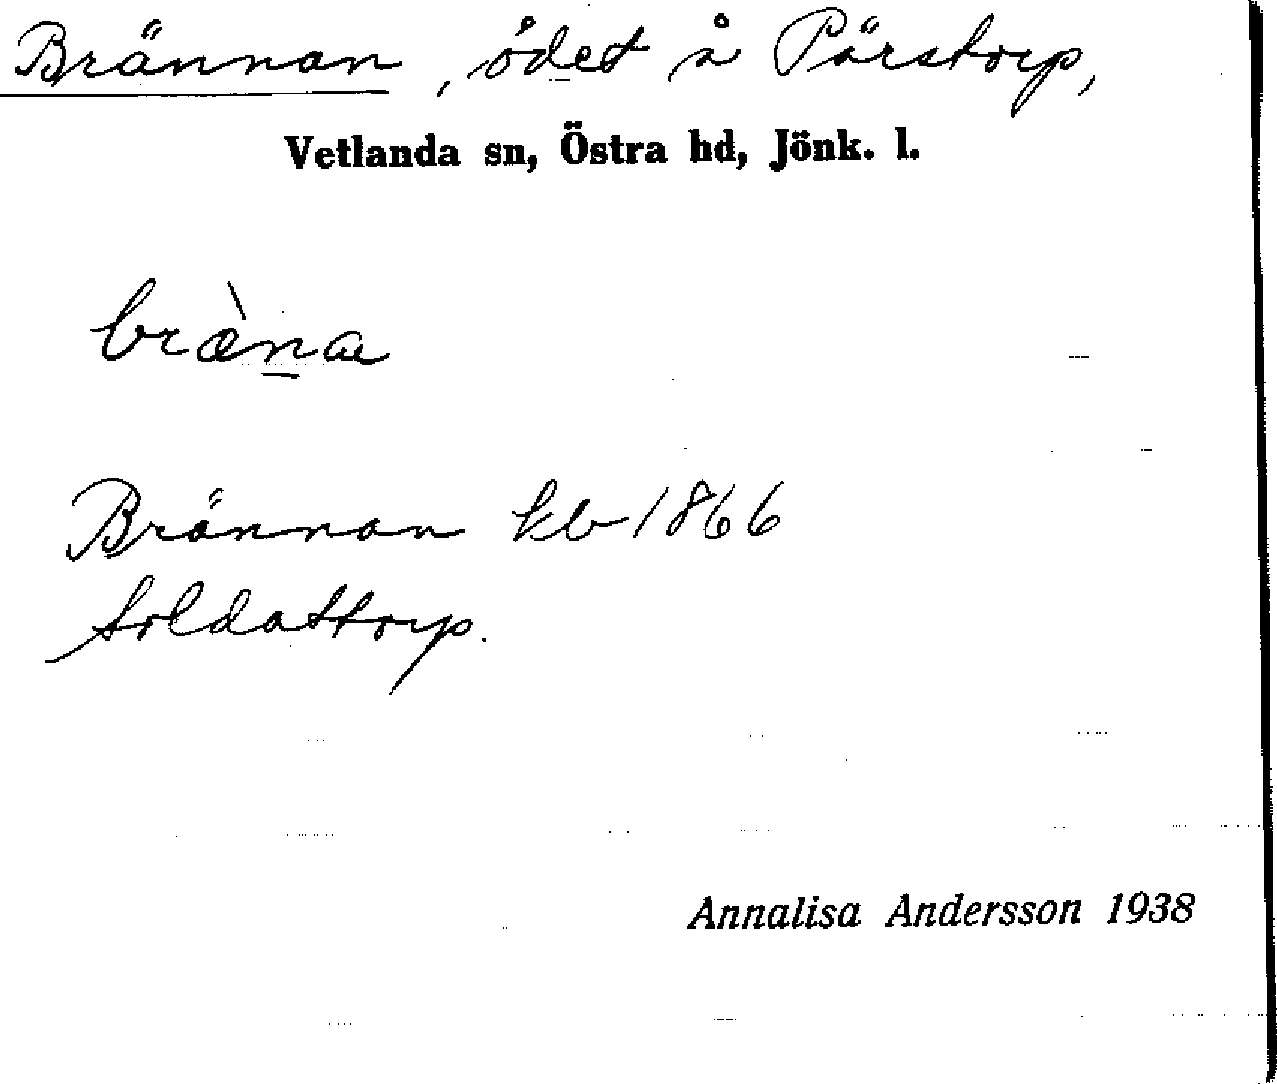 Brännan, ödet å Pärstorp,
Vetlanda sn, Östra hd, Jönk. l.
bræ̀na
Brännan kb 1866
Soldattorp.
Annalisa Andersson 1938